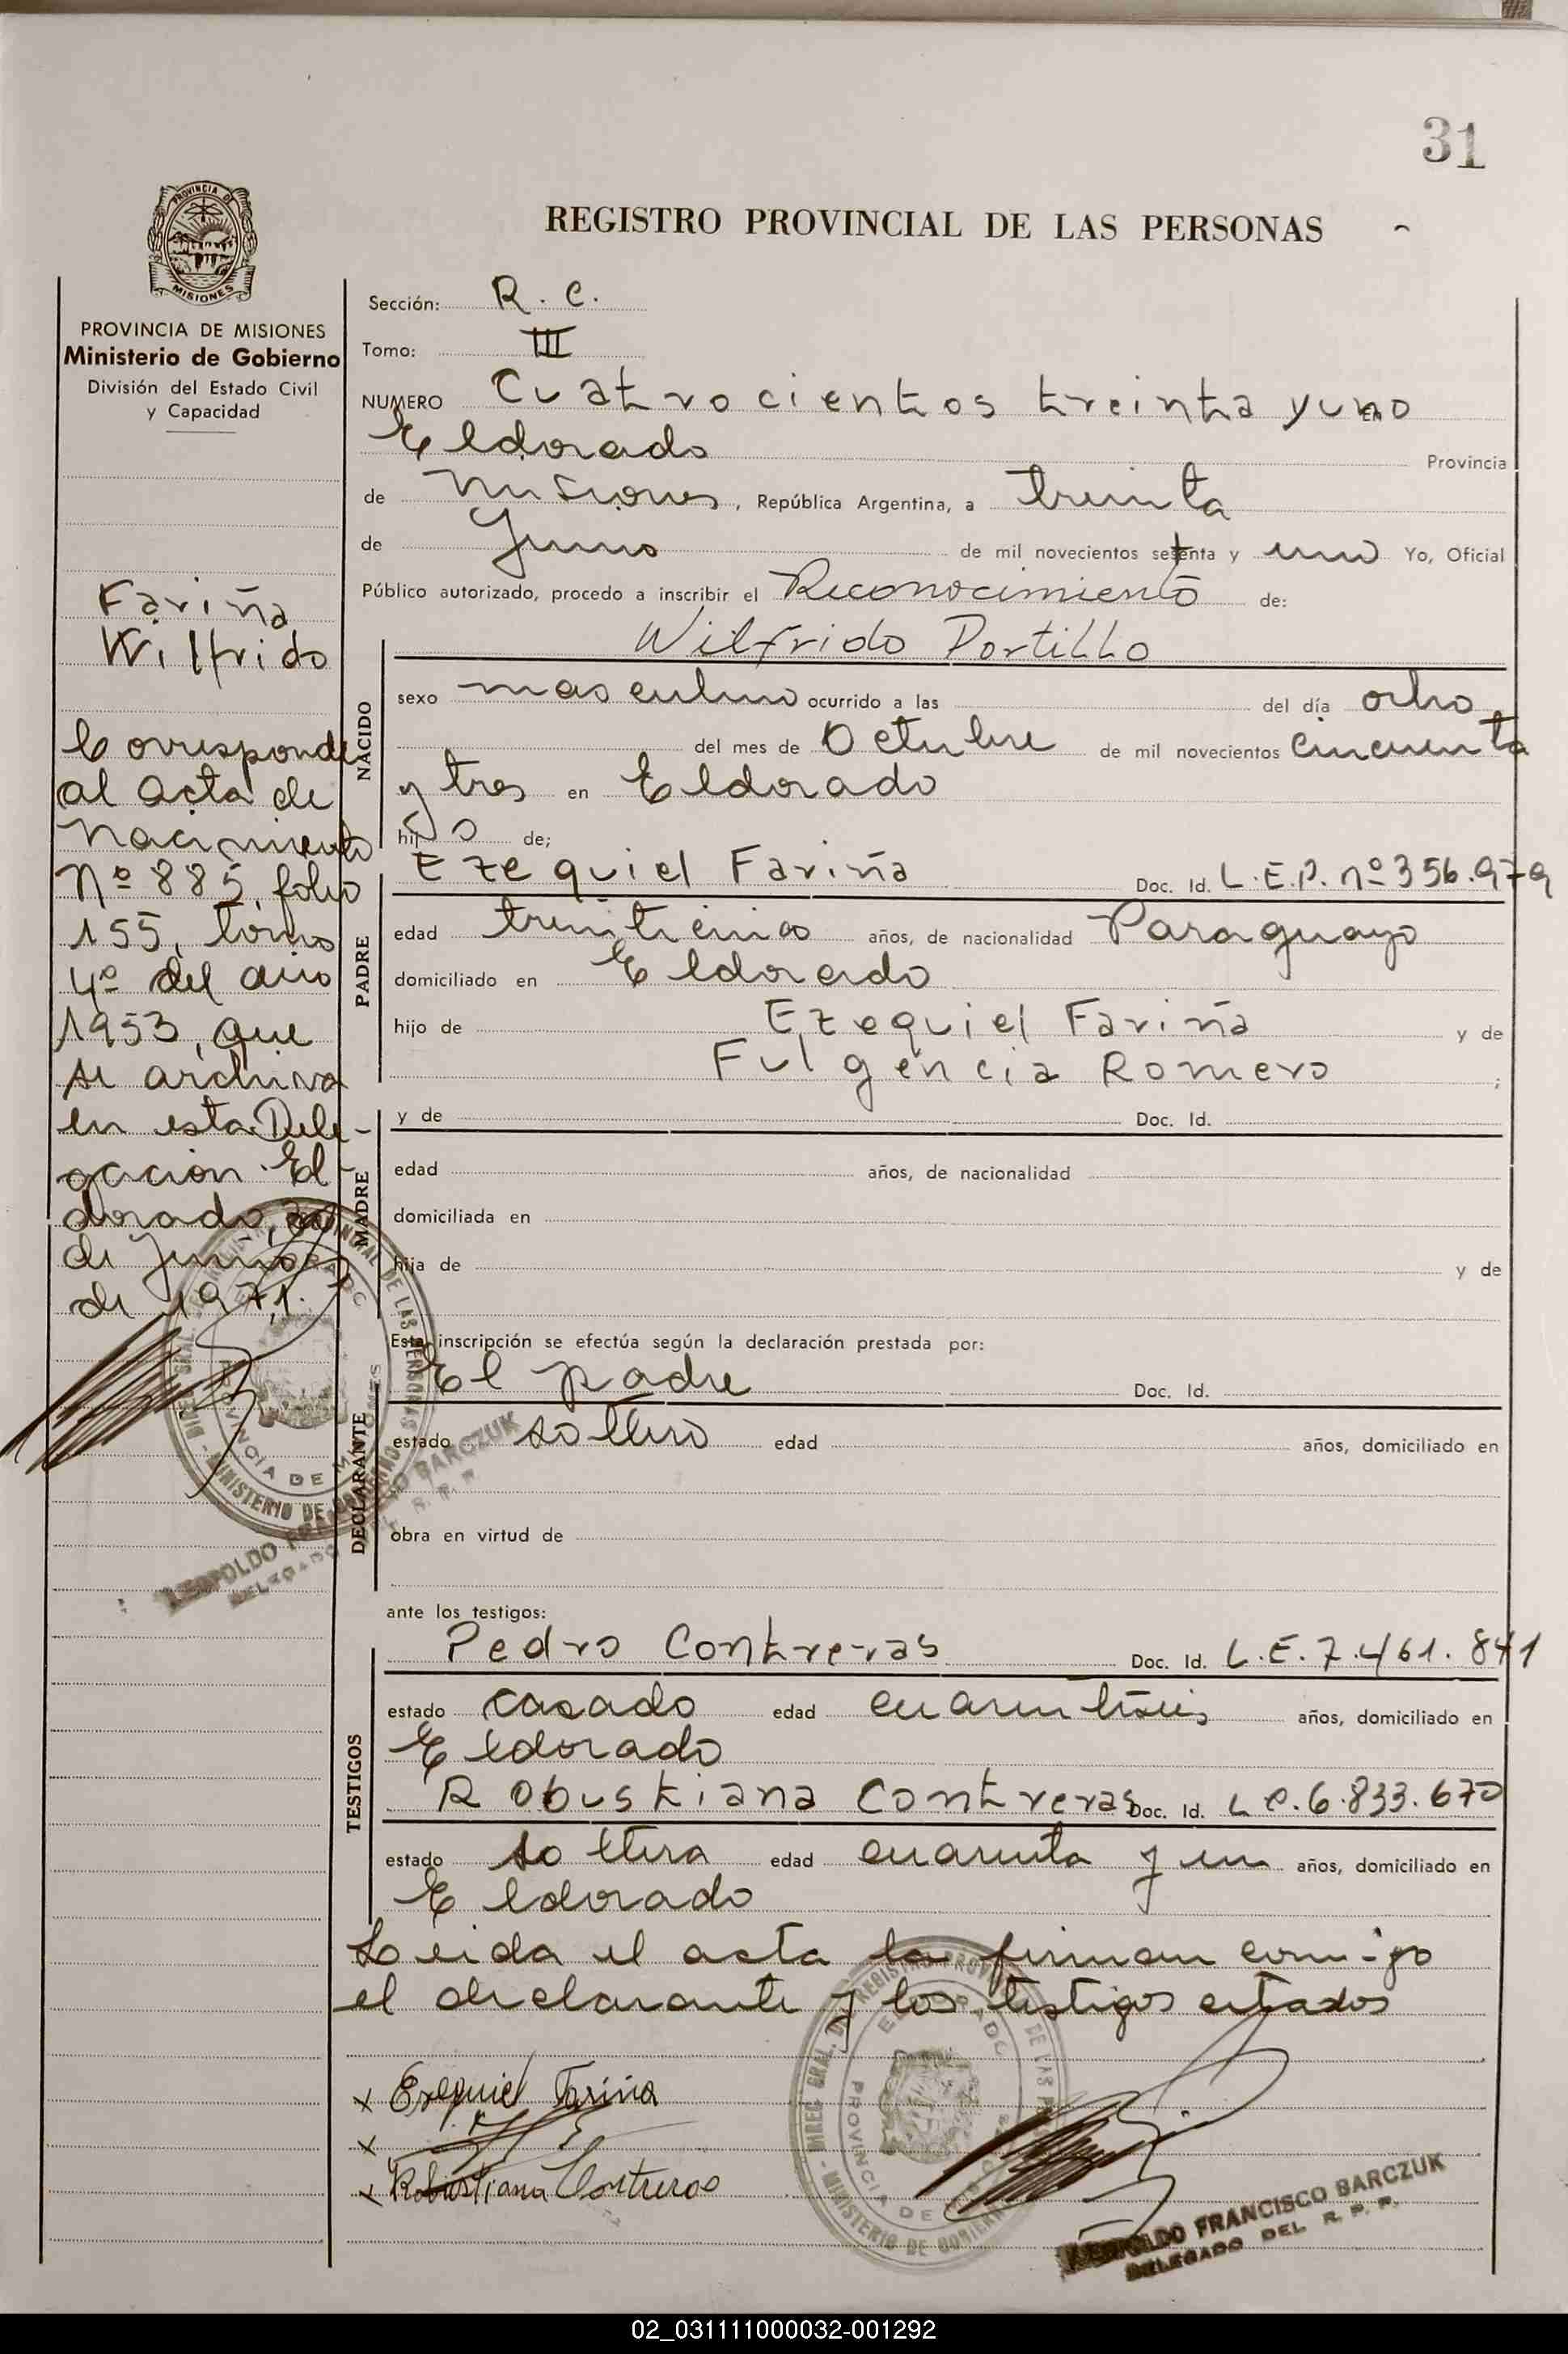 31
REGISTRO PROVINCIAL DE LAS PERSONAS
PROVINCIA DE MISIONES
PROVINCIA DE MISIONES
Ministerio de Gobierno
División del Estado Civil
y Capacidad
Fariña
Wilfrido
Corresponde
al acta de
nacimiento
Nº 885, folio
155, tomo
4º del año
1953, que
se archiva
en esta Dele-
gación. El-
dorado, 30
de Junio
de 1971.
Sección: R. C.
Tomo: III
NUMERO Cuatrocientos treinta y uno
Eldorado Provincia
de Misiones, República Argentina, a treinta
de Junio de mil novecientos setenta y uno Yo, Oficial
Público autorizado, procedo a inscribir el Reconocimiento de:
NACIDO
Wilfrido Portillo
sexo masculino ocurrido a las del día ocho
del mes de Octubre de mil novecientos cincuenta
y tres en Eldorado
hijo de;
PADRE
Ezequiel Fariña Doc. Id. L.E.P. nº 356.979
edad años, de nacionalidad Paraguayo
domiciliado en Eldorado
hijo de Ezequiel Fariña y de
Fulgencia Romero ;
MADRE
y de Doc. Id.
edad años, de nacionalidad
domiciliada en
hija de y de
Esta inscripción se efectúa según la declaración prestada por:
DECLARANTE
El padre Doc. Id.
estado soltero edad años, domiciliado en
obra en virtud de
ante los testigos:
TESTIGOS
Pedro Contreras Doc. Id. L.E. 7.461.841
estado casado edad años, domiciliado en
Eldorado
Robustiana Contreras Doc. Id. L C. 6.833.670
estado soltera edad cuarenta y un años, domiciliado en
Eldorado
Leida el acta la firman conmigo
el declarante y los testigos citados
x Ezequiel Fariña
x
x Robustiana Contreras
DIREC. GRAL. DEL REGISTRO PROVINCIAL DE LAS PERSONAS - MINISTERIO DE GOBIERNO
ELDORADO
PROVINCIA DE MISIONES
LEOPOLDO FRANCISCO BARCZUK
DELEGADO DEL R. P. P.
DIREC. GRAL. DEL REGISTRO PROV DE LAS - MINISTERIO DE GOBIERNO
ELDORADO
PROVINCIA DE MISIONES
LEOPOLDO FRANCISCO BARCZUK
DELEGADO DEL R. P. P.
02_031111000032-001292